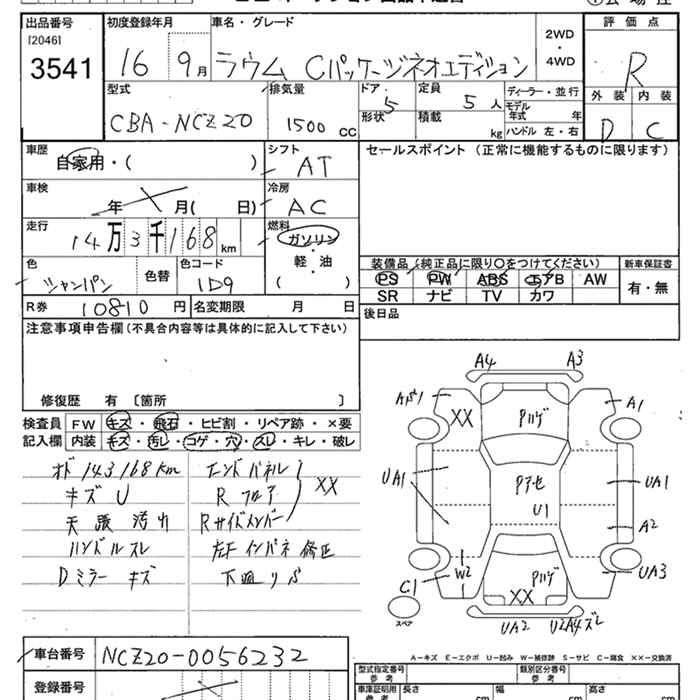 出品番号 初度登録年月 車名・グレード 評価点
[2046]
3541 16 9月 ラウム Cパッケージネオエディション 2WD・4WD R
型式 排気量 ドア 定員 ディーラー・並行 外装 内装
CBA-NCZ20 1500 CC 5 5人 モデル年式 年 D C
形状 積載 kg ハンドル 左・右
車歴 シフト セールスポイント (正常に機能するものに限ります)
自家用・( ) AT
車検 冷房
年 月( 日) AC
走行 燃料
14万3千168km ガソリン・軽・油
色 色替 色コード ( ) 装備品 (純正品に限り○をつけてください) 新車保証書
シャンパン 1D9 PS PW ABS エアB AW 有・無
SR ナビ TV カワ
R券 10810円 名変期限 月 日 後日品
注意事項申告欄 (不具合内容等は具体的に記入して下さい)
修復歴 有 [箇所 ]
検査員 FW キズ・飛石・ヒビ割・リペア跡・×要
記入欄 内装 キズ・汚レ・コゲ・穴・スレ・キレ・破レ
オド 143168km エンドパネル
キズ U R フロア XX
天張 汚れ Rサイドメンバー
ハンドルスレ 左F インパネ 修正
Dミラー キズ
A4 A3
A1
XX
UA1 UA1
U1
A2
W2 UA3
C1
スペア
XX
UA2 U2A4ズレ
A－キズ E－エクボ U－凹み W－補修跡 S－サビ C－腐食 XX－交換済
車台番号 NCZ20-0056232
型式指定番号 参考 類別区分番号 参考
登録番号
車庫証明用 参考 長さ cm 幅 cm 高さ cm